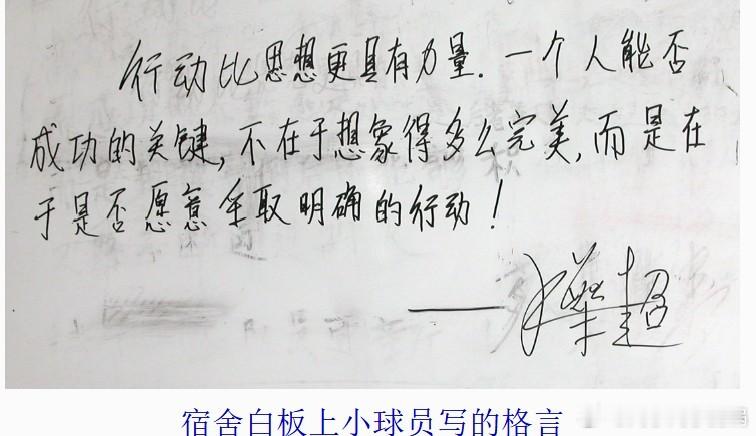 行动比思想更具有力量.一个人能否
成功的关键,不在于想象得多么完美,而是在
于是否愿意采取明确的行动!
超
宿舍白板上小球员写的格言